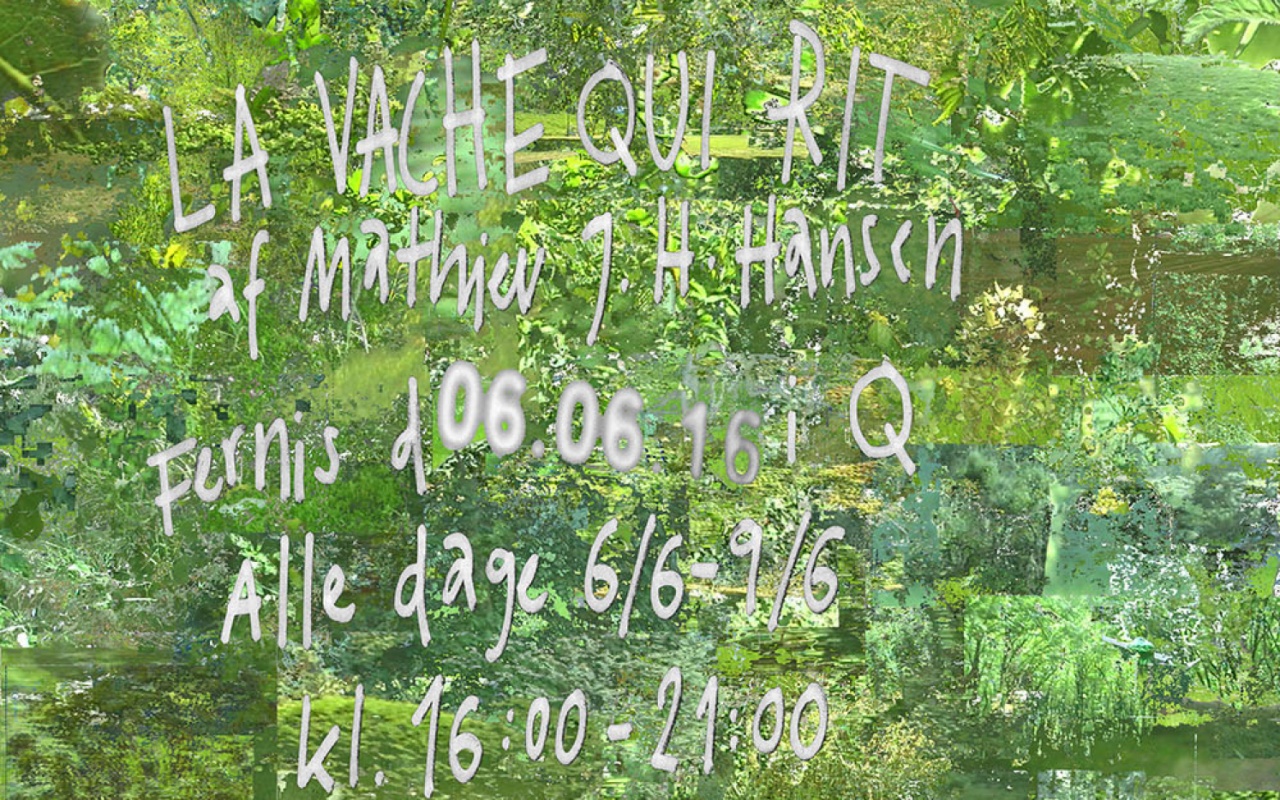 LA VACHE QUI RIT
af Mathieu J. H. Hansen
Fernis d 06.06.16 i Q
Alle dage 6/6-9/6
kl. 16:00-21:00